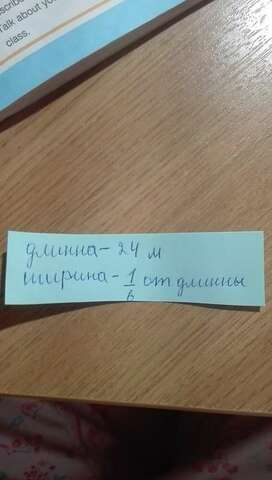 scribe
Talk about yo
class.
длинна - 24 м
ширина - 1/6 от длинны